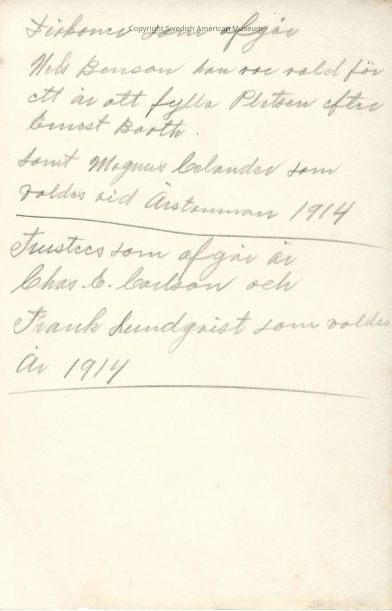 Copyright Swedish American Museum
Diakoner som afgår
Nels Benson han var vald för
ett år att fylla Platsen efter
Ernest Booth.
samt Magnus Celander som
valdes vid Årstamman 1914
Trustees som afgår är
Chas. E. Carlson och
Frank Lundqvist som valdes
År 1914